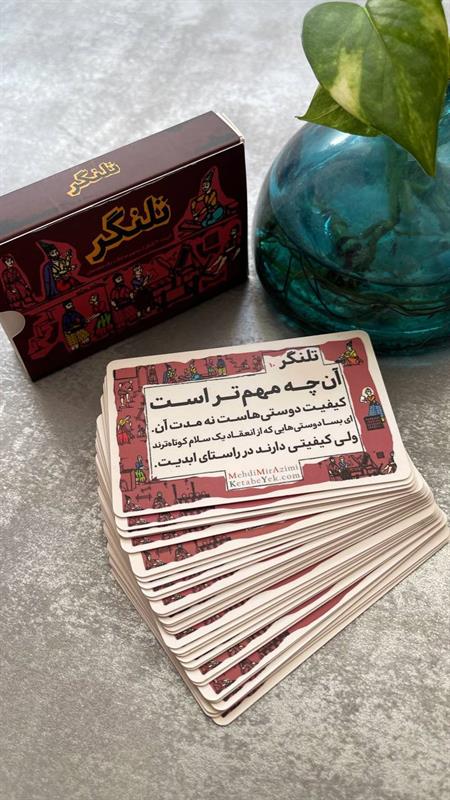 تلنگر
تلنگر
تلنگر
آن چه مهم تر است
کیفیت دوستی‌هاست نه مدت آن.
ای بسا دوستی‌هایی که از انعقاد یک سلام کوتاه‌ترند
ولی کیفیتی دارند در راستای ابدیت.
MehdiMirAzimi
KetabeYek.com